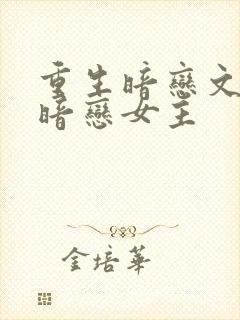 重生暗戀文
暗戀女主
金培華